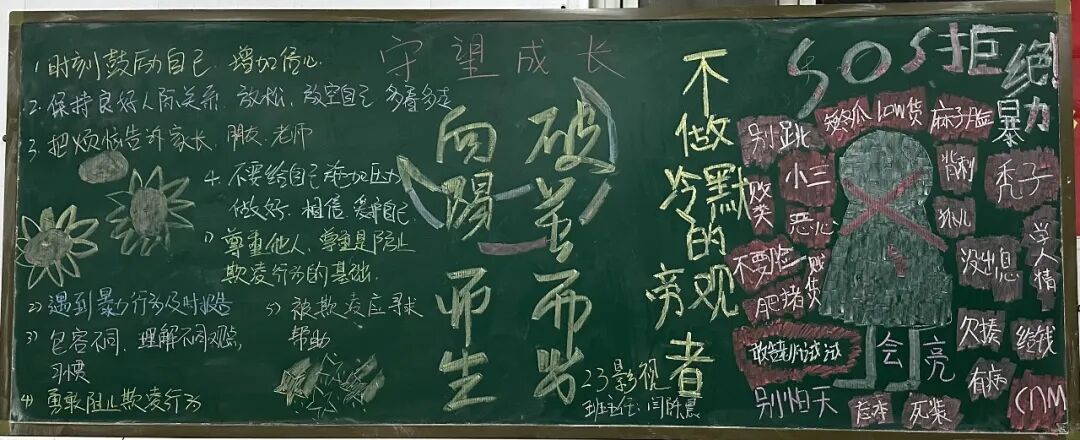 守望成长
1.时刻鼓励自己,增加信心
2.保持良好人际关系,放松,放空自己 多看多走
3.把烦恼告诉家长,朋友,老师
4.不要给自己添加压力
做好,相信,爱护自己
1)尊重他人,尊重是防止
欺凌行为的基础.
2)遇到暴力行为及时报告
3)包容不同,理解不同观点,
习惯
4)勇敢阻止欺凌行为
5)被欺凌应寻求
帮助
破茧而出
向阳而生
不做
冷默的
旁观者
23影视
班主任:闫
SOS拒绝!
暴力
别跳
low货
麻子脸
小三
背刺
秃子
败类
恶心
孤儿
学人精
不要脸
贱货
没出息
肥猪
敢链听试试
欠揍
给钱
别怕天会亮
有病
死装
CNM